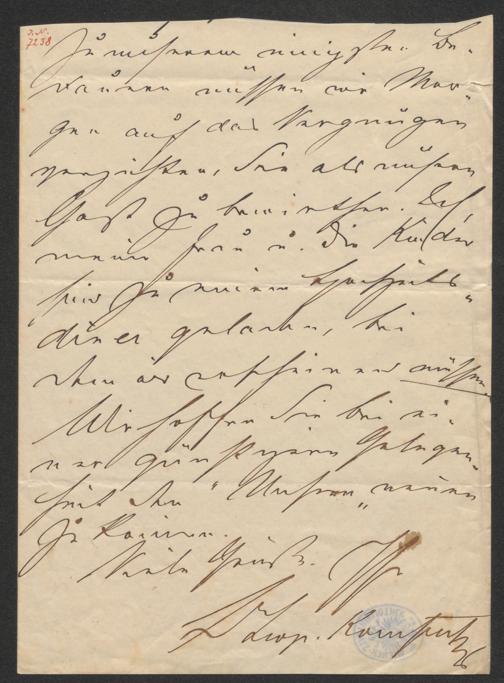 I. N.
7238
Zu unserem innigsten Be-
dauern müssen wir Mor-
gen auf das Vergnügen
verzichten, Sie als unseren
Gast zu bewirthen. Ich,
meine Frau u. die Kinder
sind zu einem Hochzeits-
diner geladen, bei
dem wir erscheinen müssen.
Wir hoffen Sie bei ei-
ner günstigeren Gelegen-
heit den "Unseren" nennen
zu können.
Viele Grüße. Ihr
Leop.